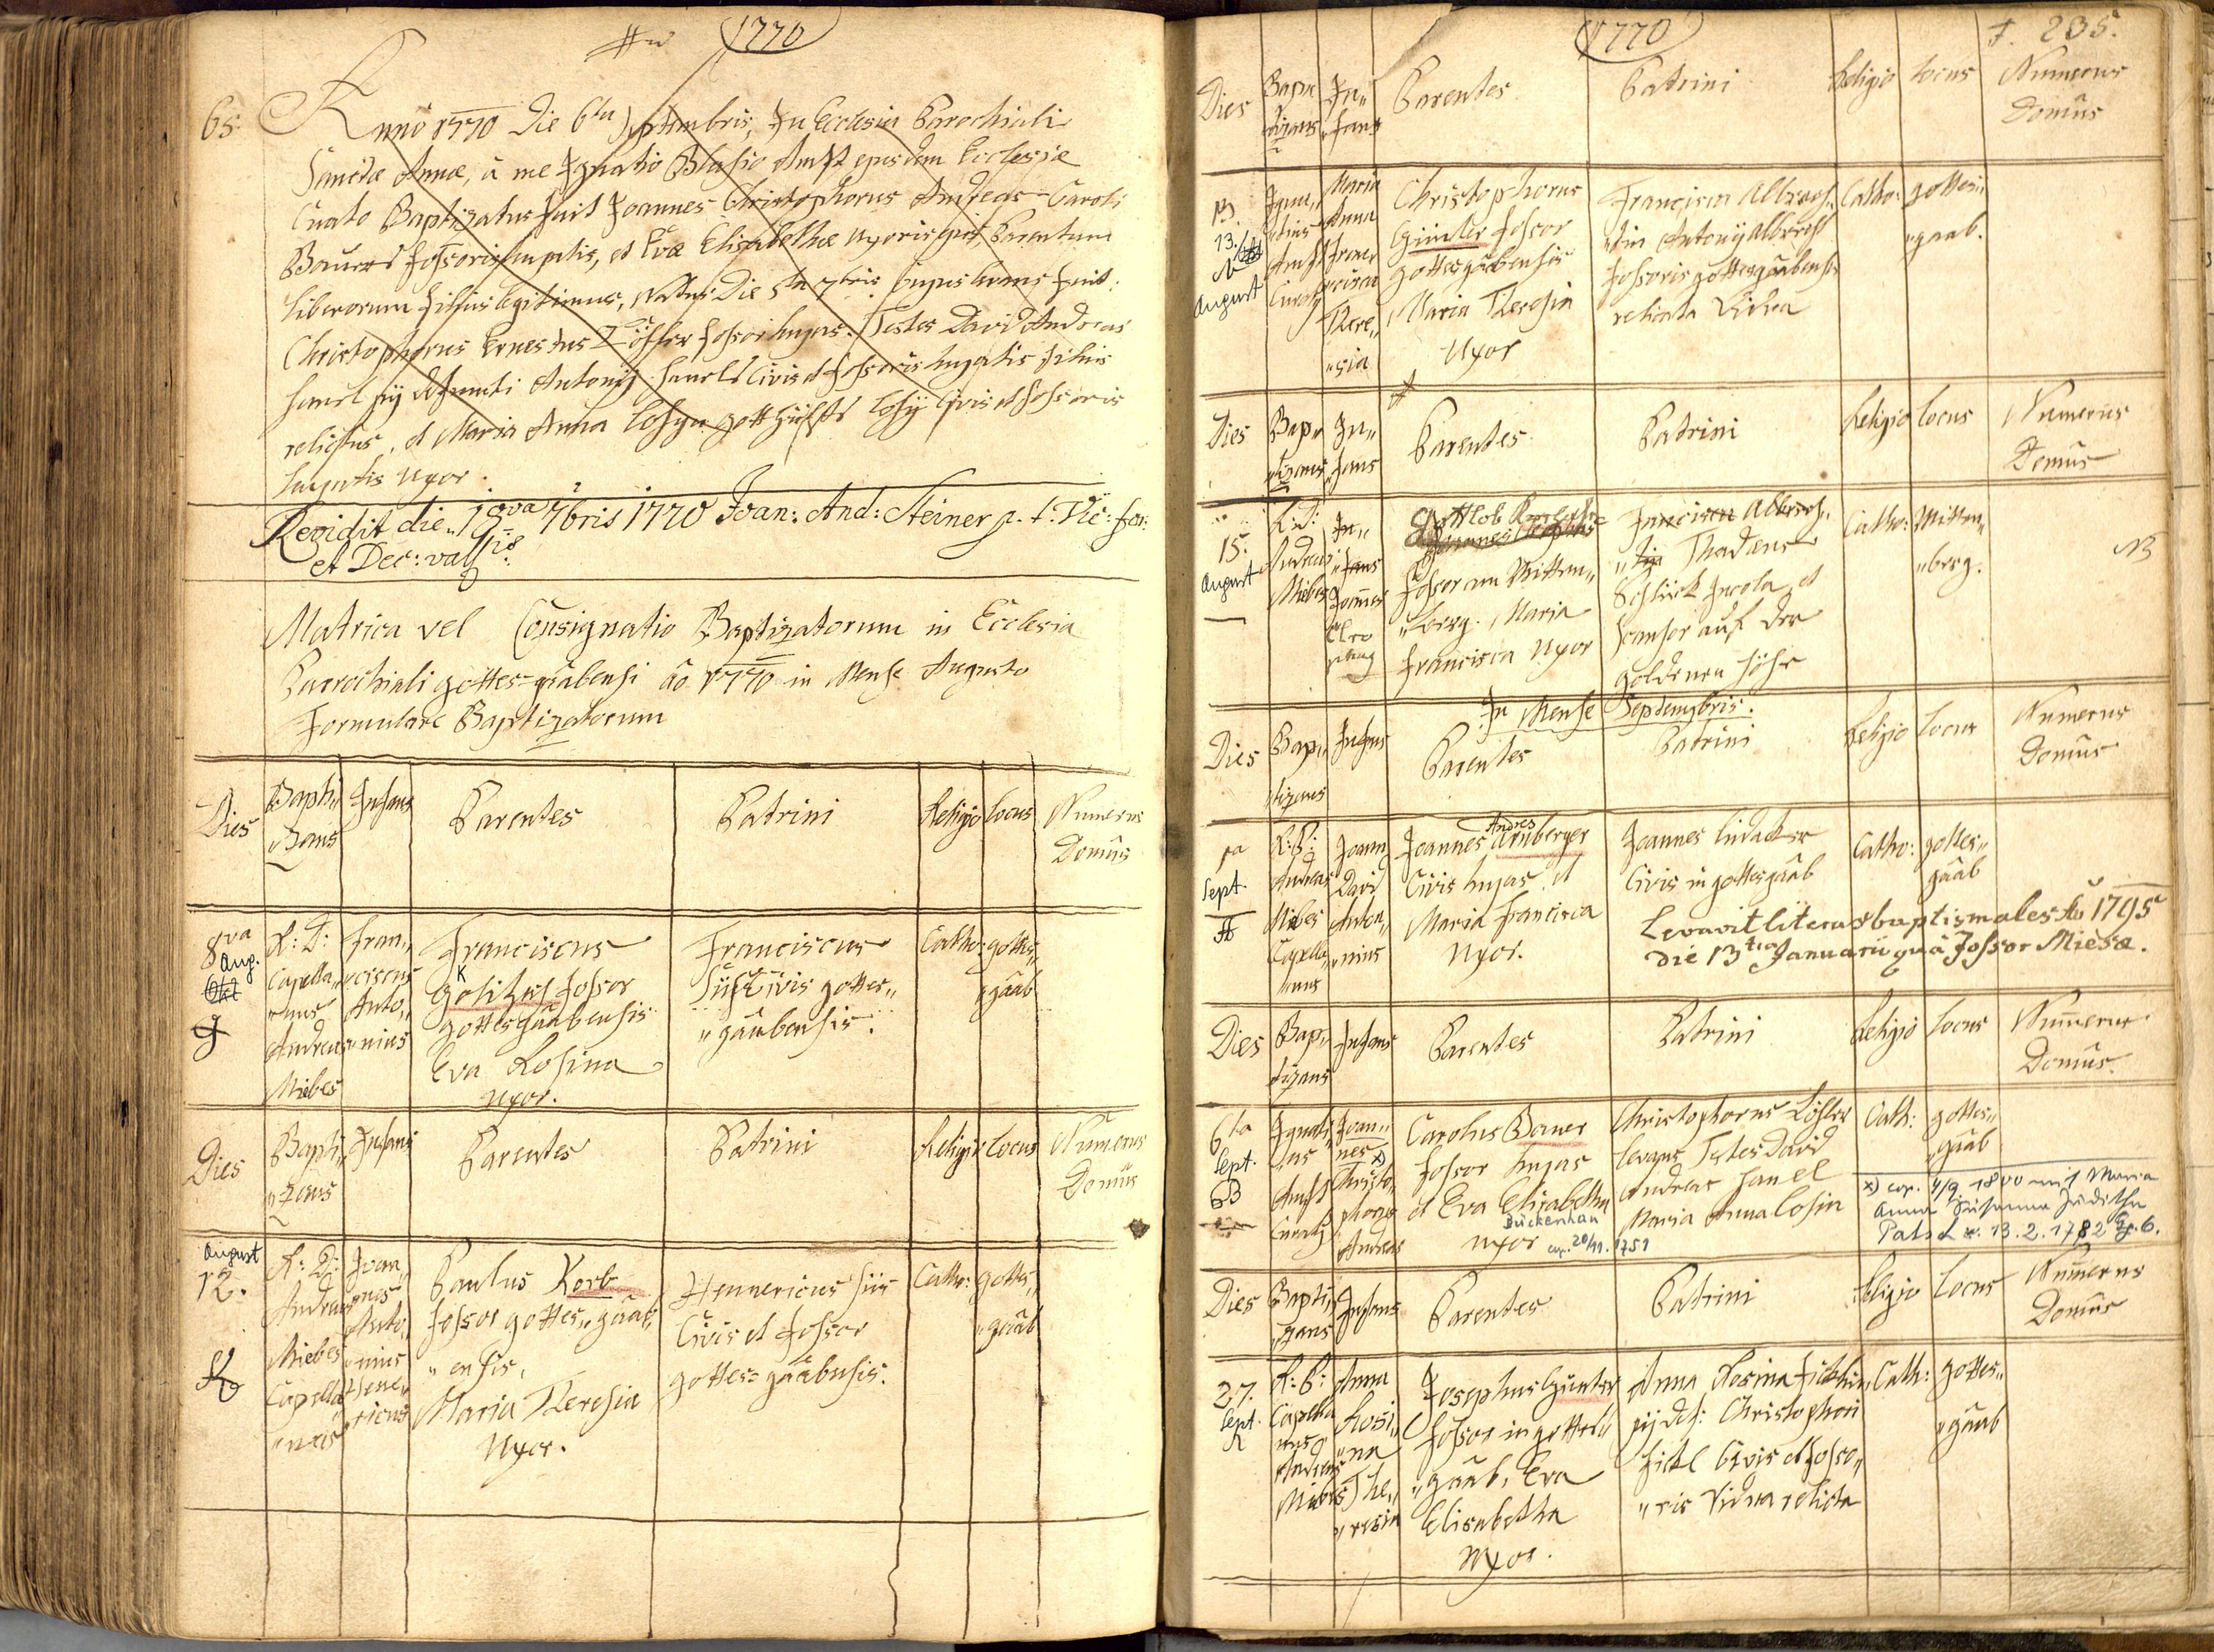 1770
65
Anno 1770 Die 6ta Septembris, In Ecclesia Parochiali
Sanctae Annae, à me Ignatio Blasio Anst ejusdem Ecclesiae
Curato Baptizatus fuit Joannes Christophorus Andreas Caroli
Bauers fossoris hujatis, et Evae Elisabethae uxoris ejus Parentum
liberorum filius legitimus, Natus Die 5ta 7bris hujus levans fuit:
Christophorus Ernestus Löhsler fossor hujas. Testes David Andreas
Hanel pij defuncti Antonij Hanels Civis et fossoris hujatis filius
relictus, et Maria Anna
hujatis uxor.
Revidit die 18va 7bris 1770 Joan: And: Steiner p. t. Vic: for:
et Dec: vallis
Matrica vel Consignatio Baptizatorum in Ecclesia
Parrochiali gottes-gäabensi ão 1770 in Mense Augusto
Formulare Baptizatorum
Dies
Bapti„
„zens
Infans
Parentes
Patrini
Religio
locus
Numerus
Domûs
8va
Aug.
R: D:
Capella„
„nus
Andreas
Miebes
Fran„
„ciscus
Anto„
„nius
Franciscus
K
Golitzel fossor
gottesgäabensis
Eva Rosina
uxor.
Franciscus
Süss Civis gottes„
„gäabensis.
Catho:
gottes„
„gäab
Dies
Bapti„
„zens
Infans
Parentes
Patrini
Religio
locus
Numerus
Domûs
August
12.
R: D:
Andreas
Miebes
Capella„
„nus
Joan„
„nes
Anto„
„nius
Hene„
„ricus
Paulus Korb
fossor gottes„gäab„
„ensis,
Maria Theresia
Uxor.
Hennericus Süs
Civis et fossor
gottes=gäabensis.
Catho:
gottes„
„gäab
1770
F. 235.
Dies
Bapti
zans
In„
„fans
Parentes
Patrini
Religio
locus
Numerus
Domûs
13.
August
Igna„
„tius
Anst
Curatus
Maria
Anna
Fran„
cisca
There„
„sia
Christophorus
Günter fossor
gottesgäabensis
Maria Theresia
Uxor
Francisca Albrech„
„tin Antonij Albrecht
fossoris gottesgäabensis
relicta Vidua
Catho:
gottes„
„gaab.
Dies
Bap„
„tizans
In„
„fans
Parentes
Patrini
Religio
locus
Numerus
Domûs
15.
August
R: D:
Andreas
Miebes
In„
„fans
Joannes
Gottlob
fossor am Mitten„
„berg. Maria
Francisca Uxor
Francisca Albrech„
„tin Thadaeus
Schlück Incola et
auf der
goldenen Höhe
Catho:
Mitten„
„berg.
NB
In Mense Septembris.
Dies
Bap„
„tizans
Infans
Parentes
Patrini
Religio
locus
Numerus
Domûs
1a
Sept.
R: P:
Andreas
Miebes
Capella„
„nus
Joann
David
Anton„
„nius
Andres
Joannes Arnberger
Civis hujas et
Maria Francisca
Uxor.
Joannes Lindacker
Civis in gottesgäab
Catho:
gottes„
gäab
Levavit literas baptismales Ao 1795
die 13tia Januarii qua Fossor Miesae.
Dies
Bap„
„tizans
Infans
Parentes
Patrini
Religio
locus
Numerus
Domûs
6ta
Sept.
Ignati„
„us
Anst
Curatus
Joan„
nes x)
Christo„
phorus
Andreas
Carolus Bauer
fossor hujas
et Eva Elisabetha
Bückenhau
uxor cop. 20/11. 1751
Christophorus Löhsler
levans Testes David
Andreas Hanel
Maria Anna Losin
Cath:
gottes„
„gäab
x) cop. 4/9 1800 mit Maria
Anna Susanna Juditha
*. 13. 2. 1782
Dies
Bapti„
„zans
Infans
Parentes
Patrini
Religio
locus
Numerus
Domûs
27.
Sept.
R: P:
Capella
nus
Andreas
Miebes
Anna
Rosi„
„na
The„
„resia
Josephus Günter
fossor in gottes„
„gäab, Eva
Elisabetha
uxor.
Anna Rosina
pij def: Christophori
Civis et fosso„
„ris Vidua relicta
Cath:
gottes„
„gäab